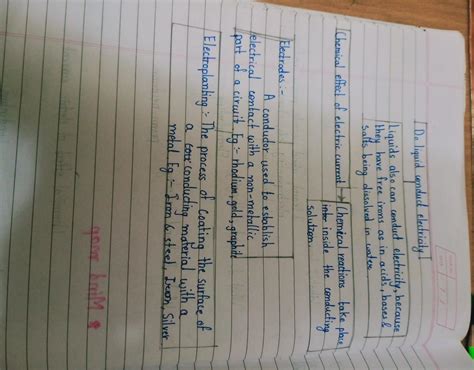 Do liquid conduct electricity?
Liquids also can conduct electricity, because
they have free irons as in acids, bases &
salts being dissolved in water.
Chemical effect of electric current → Chemical reactions take place
inside the conducting
solution
Electrodes :-
A conductor used to establish
electrical contact with a non-metallic
part of a circuit Eg :- rhodium, gold, graphite
Electroplanting :- The process of Coating the surface of
a conducting material with a
metal Eg :- Iron & steel, Iron, Silver.
Mind map